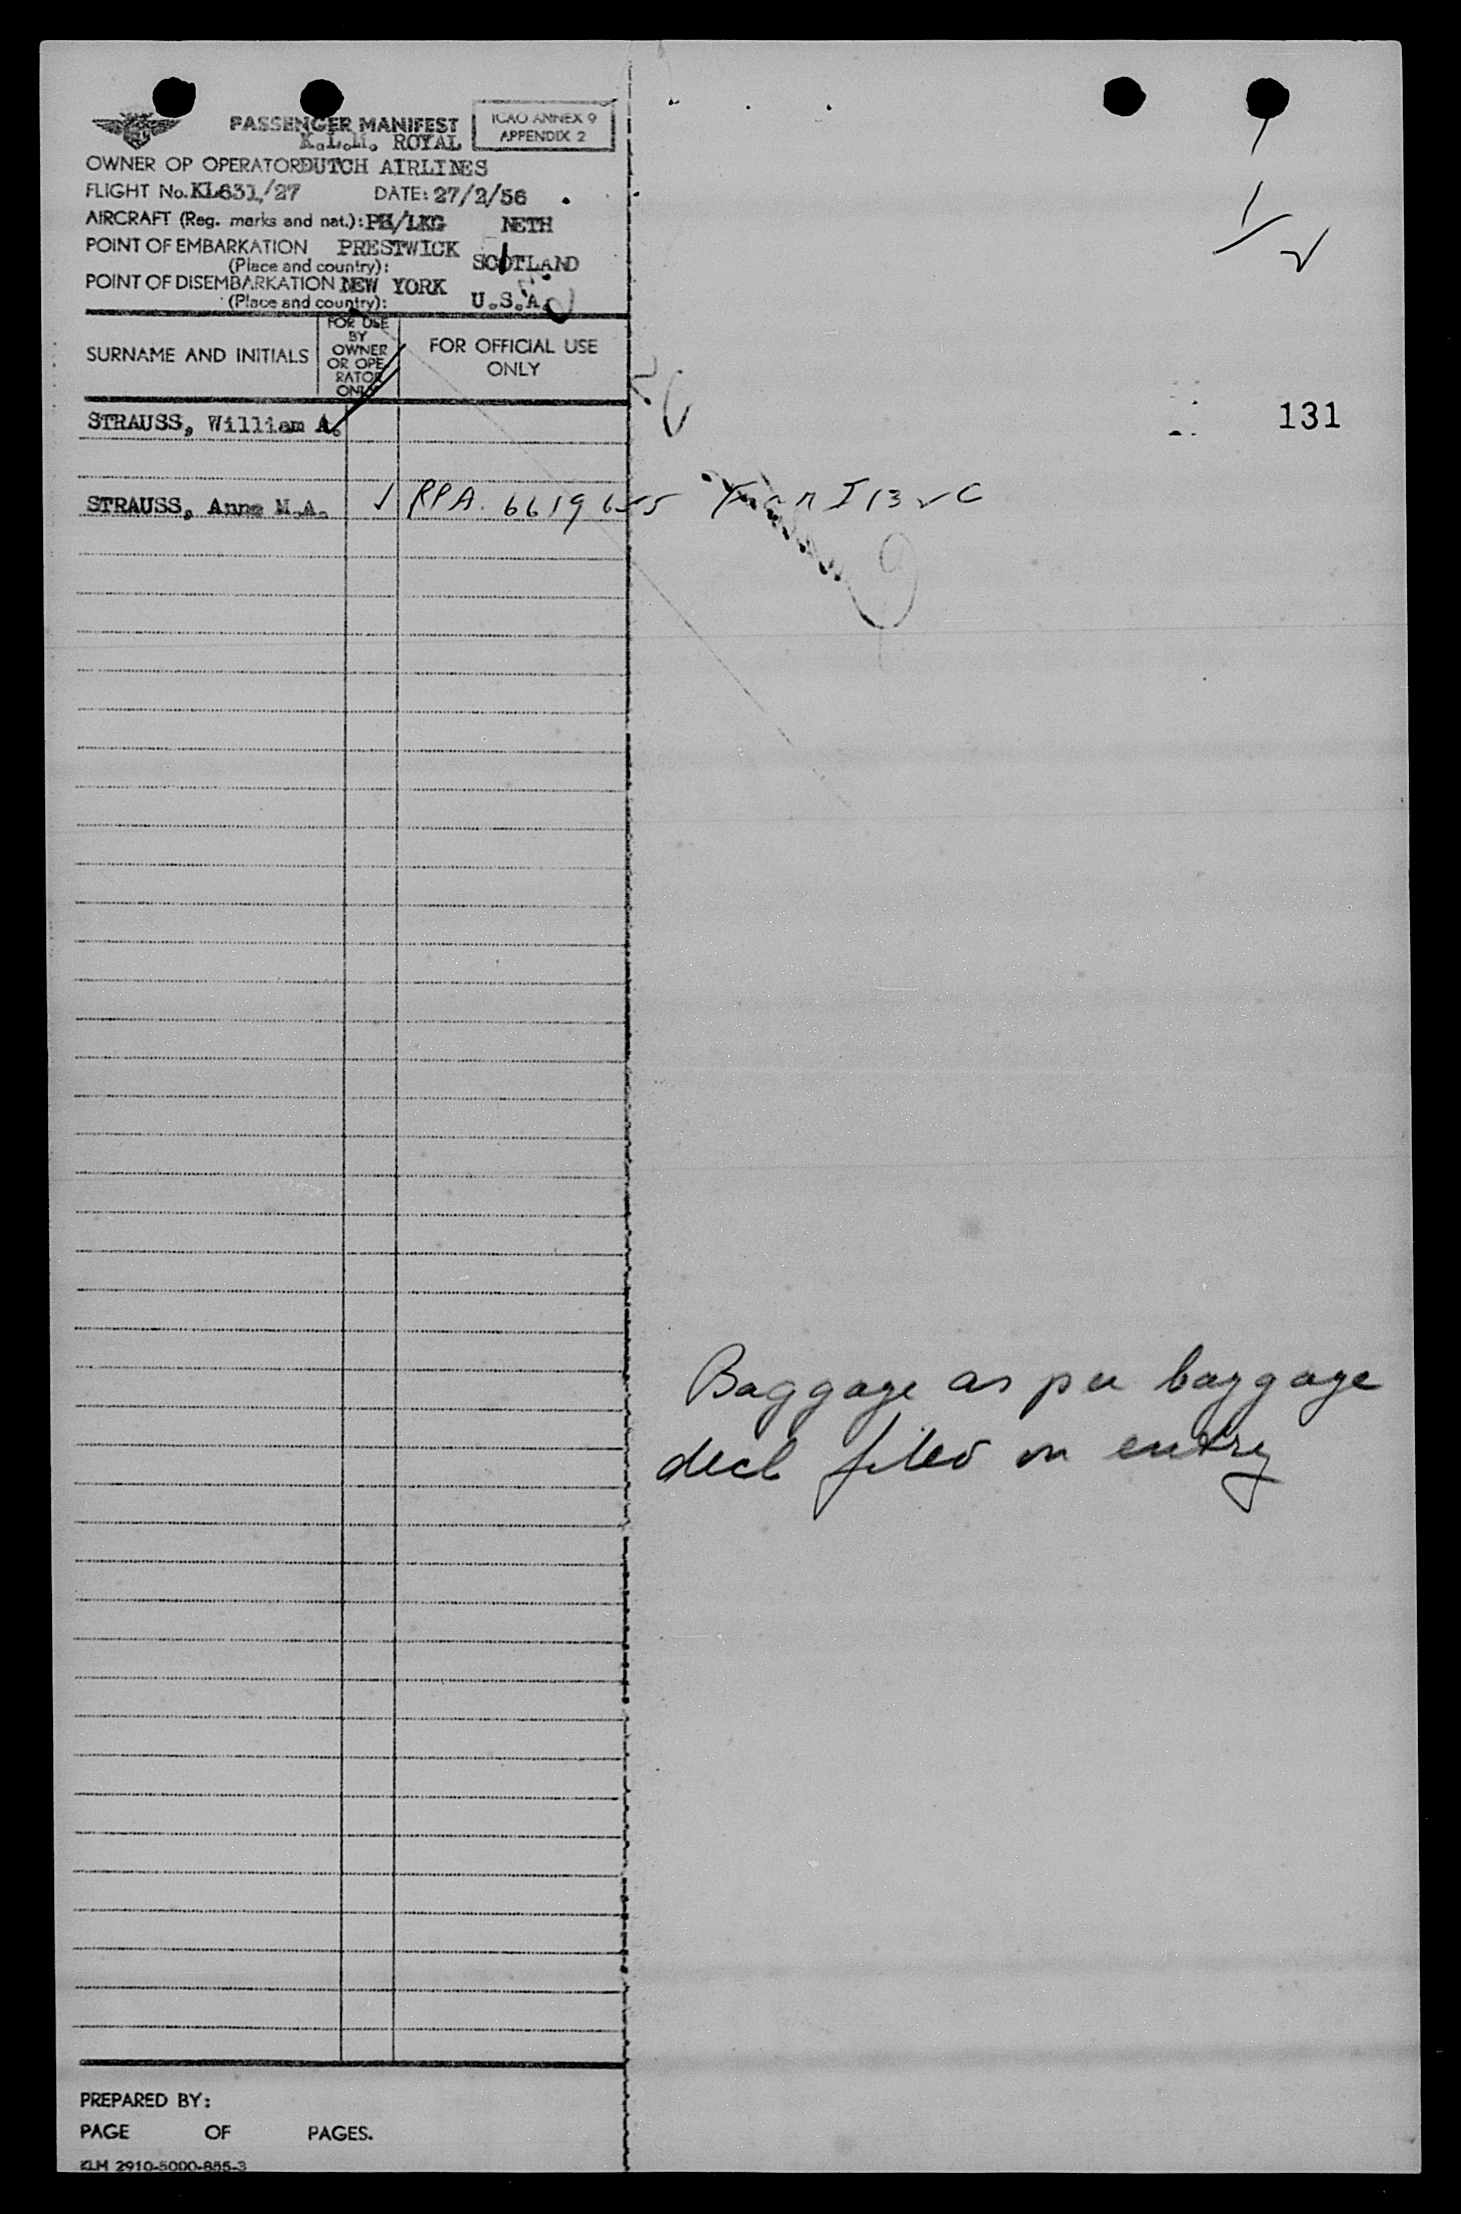 PASSENGER MANIFEST
ICAO ANNEX 9
APPENDIX 2
K.L.M. ROYAL
OWNER OP OPERATOR DUTCH AIRLINES
FLIGHT No. KL631/27 DATE: 27/2/56
AIRCRAFT (Reg. marks and nat.): PH/LKG NETH
POINT OF EMBARKATION PRESTWICK
(Place and country): SCOTLAND
POINT OF DISEMBARKATION NEW YORK
(Place and country): U.S.A.
SURNAME AND INITIALS
FOR USE
BY
OWNER
OR OPE
RATOR
ONLY
FOR OFFICIAL USE
ONLY
STRAUSS, William A.
131
STRAUSS, Anne M.A. RPA. 6619655
Baggage as per baggage
decl filed on entry
PREPARED BY:
PAGE OF PAGES.
KLM 2910-5000-855-3